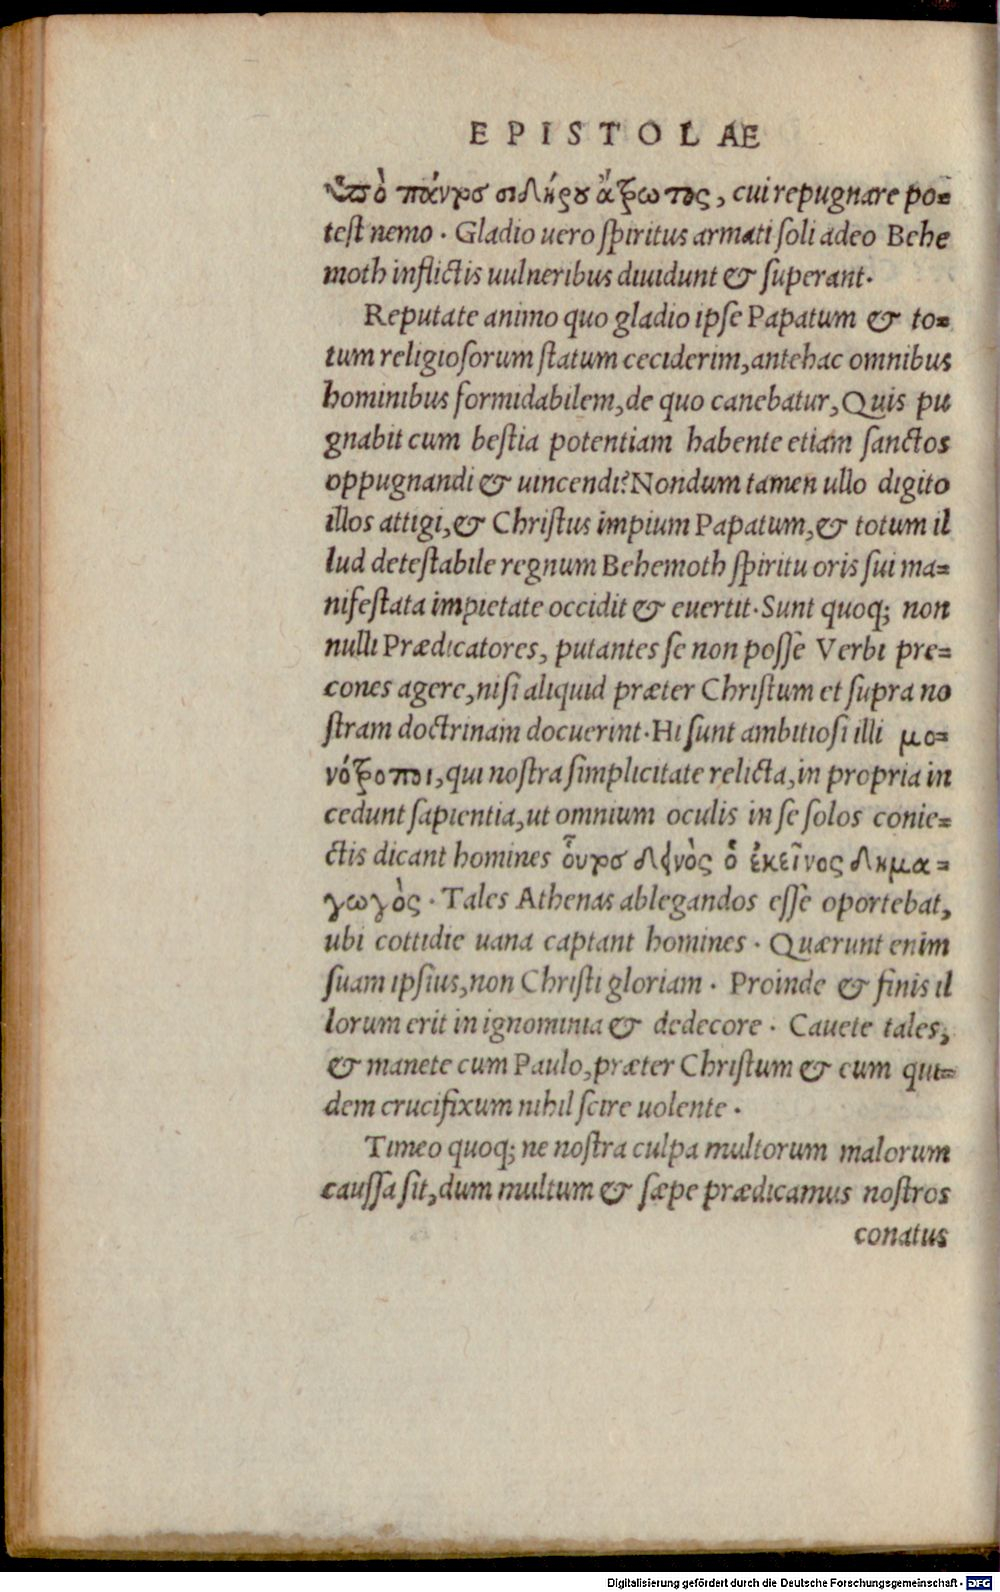 EPISTOLAE
ὑπὸ παντὸσ σιδήρου ἄτρωτος, cui repugnare po=
test nemo. Gladio uero spiritus armati soli adeo Behe
moth inflictis uulneribus diuidunt & superant.
Reputate animo quo gladio ipse Papatum & to=
tum religiosorum statum ceciderim, antehac omnibus
hominibus formidabilem, de quo canebatur, Quis pu
gnabit cum bestia potentiam habente etiam sanctos
oppugnandi & uincendi? Nondum tamen ullo digito
illos attigi, & Christus impium Papatum, & totum il
lud detestabile regnum Behemoth spiritu oris sui ma=
nifestata impietate occidit & euertit. Sunt quoq; non
nulli Prædicatores, putantes se non posse Verbi pre=
cones agere, nisi aliquid præter Christum et supra no
stram doctrinam docuerint. Hi sunt ambitiosi illi μο=
νότροποι, qui nostra simplicitate relicta, in propria in
cedunt sapientia, ut omnium oculis in se solos conie=
ctis dicant homines οὗτοσ δεινὸς ὁ ἐκεῖνος δημα=
γωγὸς. Tales Athenas ablegandos esse oportebat,
ubi cottidie uana captant homines. Quærunt enim
suam ipsius, non Christi gloriam. Proinde & finis il
lorum erit in ignominia & dedecore. Cauete tales,
& manete cum Paulo, præter Christum & eum qui=
dem crucifixum nihil scire uolente.
Timeo quoq; ne nostra culpa multorum malorum
caussa sit, dum multum & sæpe prædicamus nostros
conatus
Digitalisierung gefördert durch die Deutsche Forschungsgemeinschaft - DFG